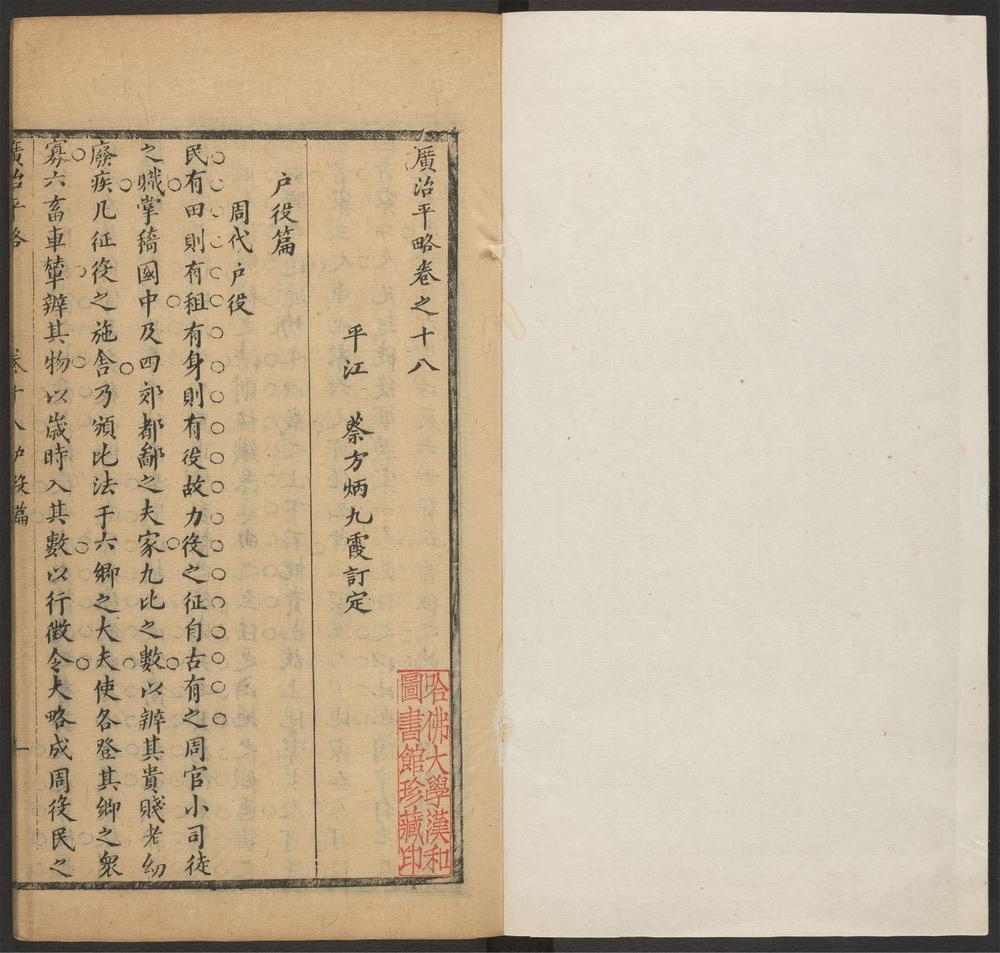 廣治平略卷之十八
平江 蔡方炳九霞訂定
戶役篇
周代戶役
民有田則有租有身則有役故力役之征自古有之周官小司徒
之職掌稽國中及四郊都鄙之夫家九比之數以辨其貴賤老幼
廢疾凡征役之施舍乃頒比法于六鄉之大夫使各登其鄉之衆
寡六畜車輦辨其物以歲時入其數以行徵令大略成周役民之
廣治平略 卷十八戶役篇 一
哈佛大學漢和
圖書館珍藏印